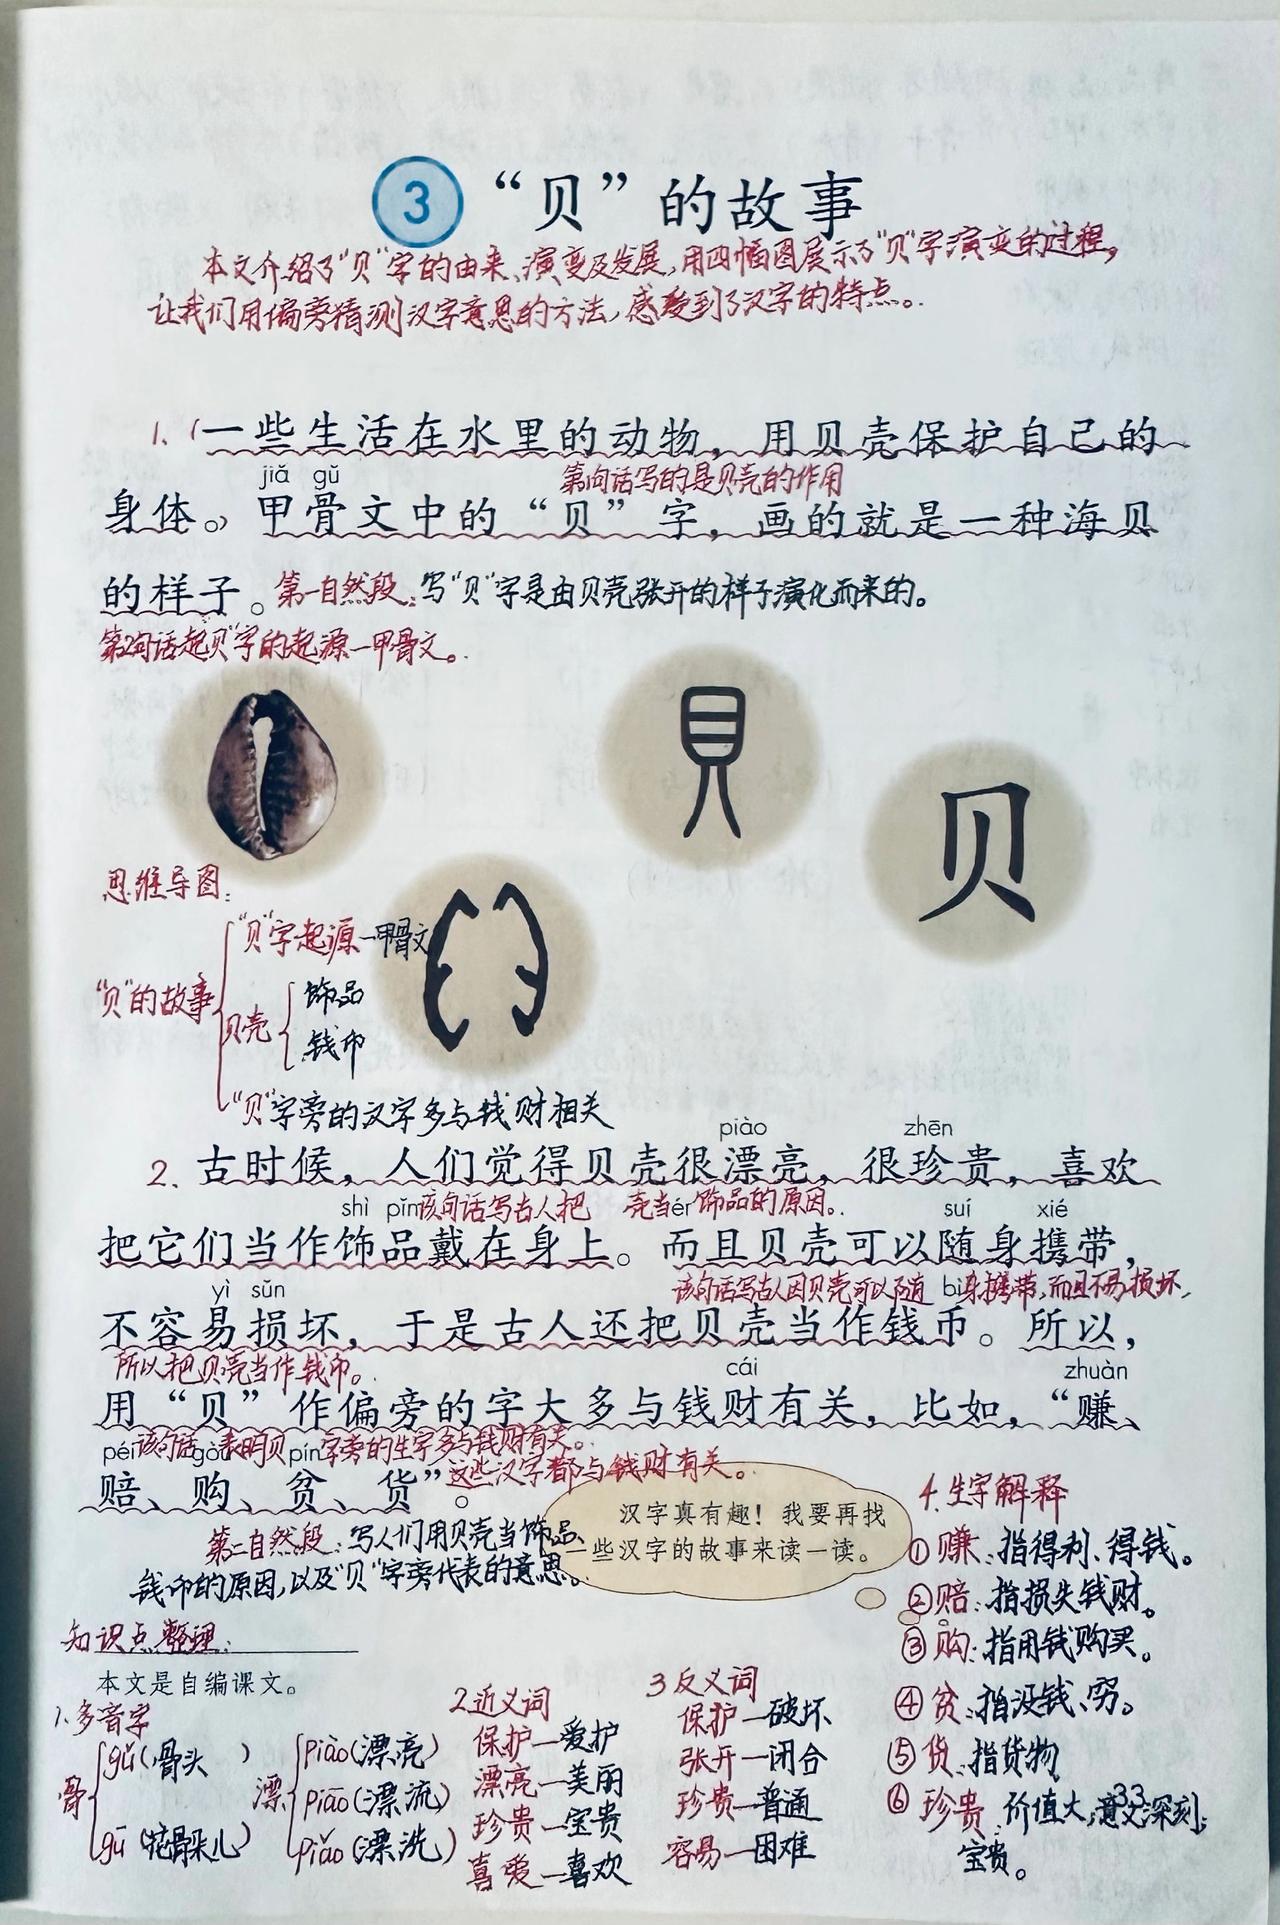 3 “贝”的故事
本文介绍了“贝”字的由来、演变及发展,用四幅图展示了“贝”字演变的过程,
让我们用偏旁猜测汉字意思的方法,感受到了汉字的特点。
1、(一些生活在水里的动物，用贝壳保护自己的
jiǎ gǔ 第1句话写的是贝壳的作用
身体。)甲骨文中的“贝”字，画的就是一种海贝
的样子。第一自然段:写“贝”字是由贝壳张开的样子演化而来的。
第2句话起“贝”字的起源一甲骨文。
貝
贝
思维导图:
“贝”字起源一甲骨文
“贝”的故事
贝壳
饰品
钱币
“贝”字旁的汉字多与钱财相关
piào zhēn
2、古时候，人们觉得贝壳很漂亮，很珍贵，喜欢
shì pǐn 该句话写古人把 壳当 ér 饰品的原因。 suí xié
把它们当作饰品戴在身上。而且贝壳可以随身携带，
该句话写古人因贝壳可以随 bì 身携带,而且不易损坏,
yì sǔn
不容易损坏，于是古人还把贝壳当作钱币。所以，
所以把贝壳当作钱币。 cái zhuàn
用“贝”作偏旁的字大多与钱财有关，比如，“赚、
péi 该句话 gòu 表明贝 pín 字旁的生字多与钱财有关。
赔、购、贫、货”。这些汉字都与钱财有关。
汉字真有趣！我要再找
一些汉字的故事来读一读。
第二自然段:写人们用贝壳当饰品、
钱币的原因,以及“贝”字旁代表的意思。
4.生字解释
①赚:指得利、得钱。
②赔:指损失钱财。
③购:指用钱购买。
④贫:指没钱、穷。
⑤货:指货物
⑥珍贵:价值大;意义深刻;
宝贵。
33
知识点整理:
本文是自编课文。
1.多音字
骨
gǔ(骨头)
gū(花骨朵儿)
漂
piào(漂亮)
piāo(漂流)
piǎo(漂洗)
2.近义词
保护—爱护
漂亮—美丽
珍贵—宝贵
喜爱—喜欢
3反义词
保护—破坏
张开—闭合
珍贵—普通
容易—困难